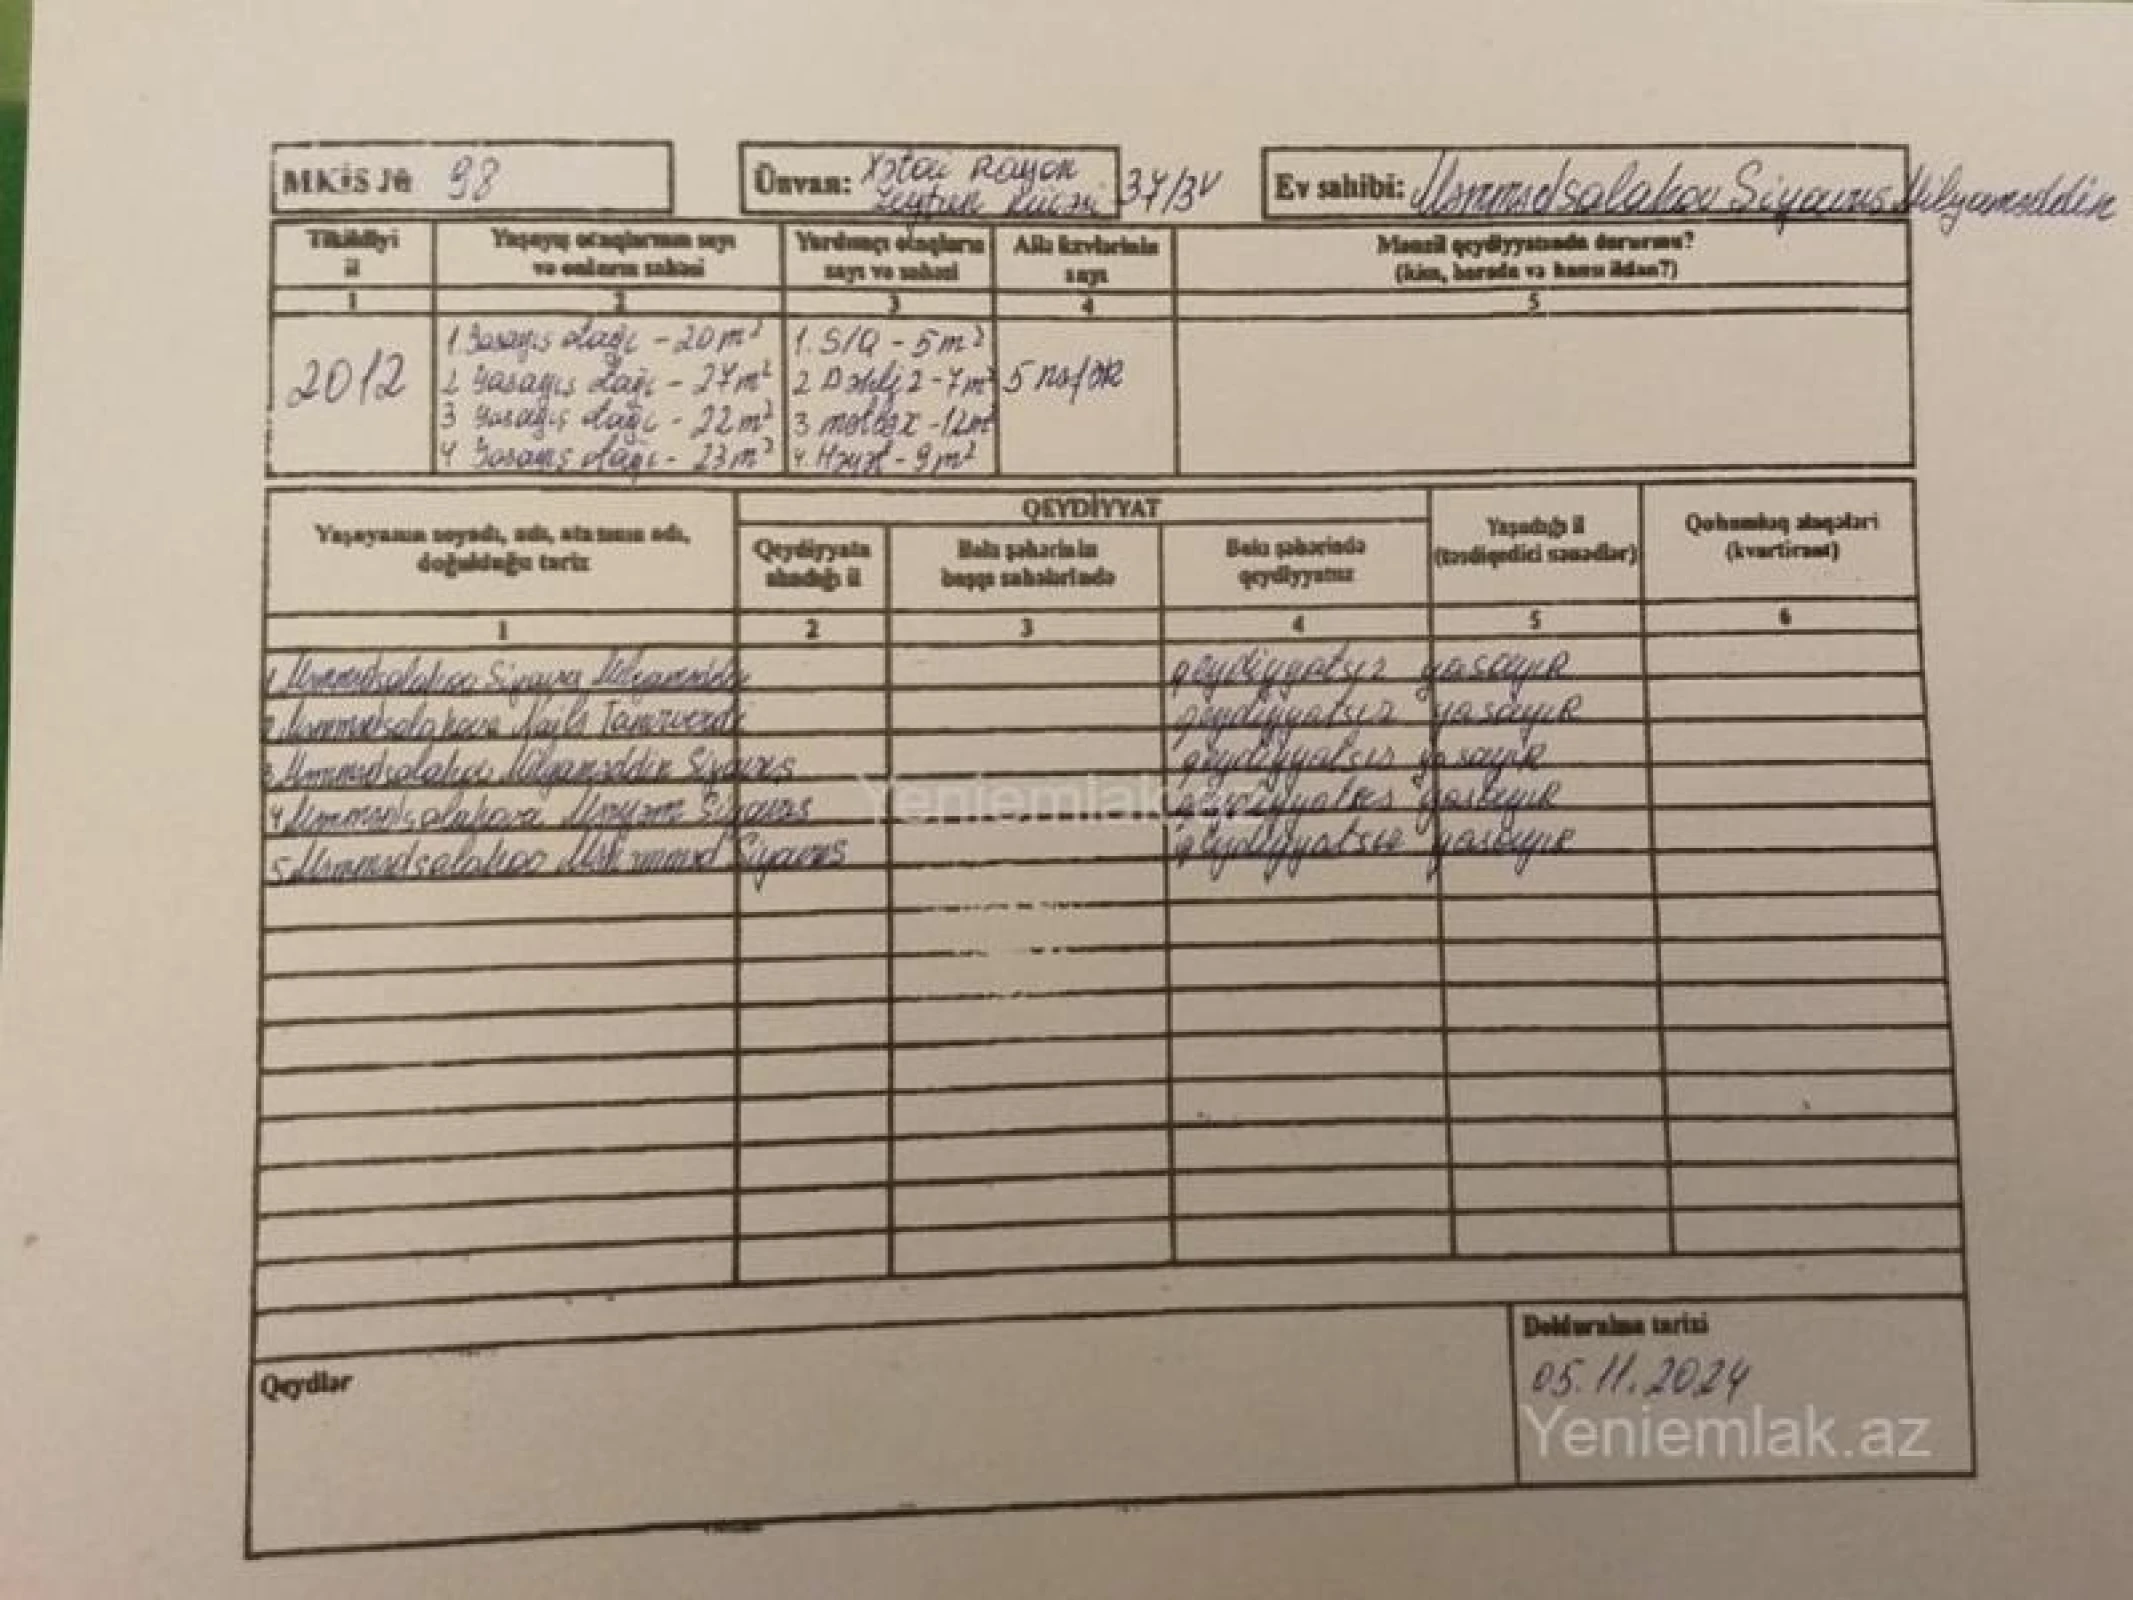 MKİS № 98
Ünvan: Xətai Rayon
Zeytun küçəsi 37/3V
Ev sahibi: Məmmədsalahov Siyavuş Milyanəddin
Tikildiyi
il
Yaşayış otaqlarının sayı
və onların sahəsi
Yardımçı otaqların
sayı və sahəsi
Ailə üzvlərinin
sayı
Mənzil qeydiyyatında dururmu?
(kim, harada və hansı ildən?)
1 2 3 4 5
2012
1 Yaşayış otağı - 20 m²
2 Yaşayış otağı - 27 m²
3 Yaşayış otağı - 22 m²
4 Yaşayış otağı - 23 m²
1. S/Q - 5 m²
2 Dəhliz - 7 m²
3 mətbəx - 12 m²
4. Həyət - 9 m²
5 nəfər
Yaşayanın soyadı, adı, atasının adı,
doğulduğu tarix
QEYDİYYAT
Qeydiyyata
alındığı il
Bakı şəhərinin
başqa sahələrində
Bakı şəhərində
qeydiyyatsız
Yaşadığı il
(təsdiqedici sənədlər)
Qohumluq əlaqələri
(kvartirant)
1 2 3 4 5 6
1 Məmmədsalahov Siyavuş Milyanəddin qeydiyyatsız yaşayır
2 Məmmədsalahova Tanrıverdi qeydiyyatsız yaşayır
3 Məmmədsalahov Milyanəddin Siyavuş qeydiyyatsız yaşayır
4 Məmmədsalahova Məryəm Siyavuş qeydiyyatsız yaşayır
5 Məmmədsalahov Məhəmməd Siyavuş qeydiyyatsız yaşayır
Yeniemlak
Qeydlər
Doldurulma tarixi
05.11.2024
Yeniemlak.az